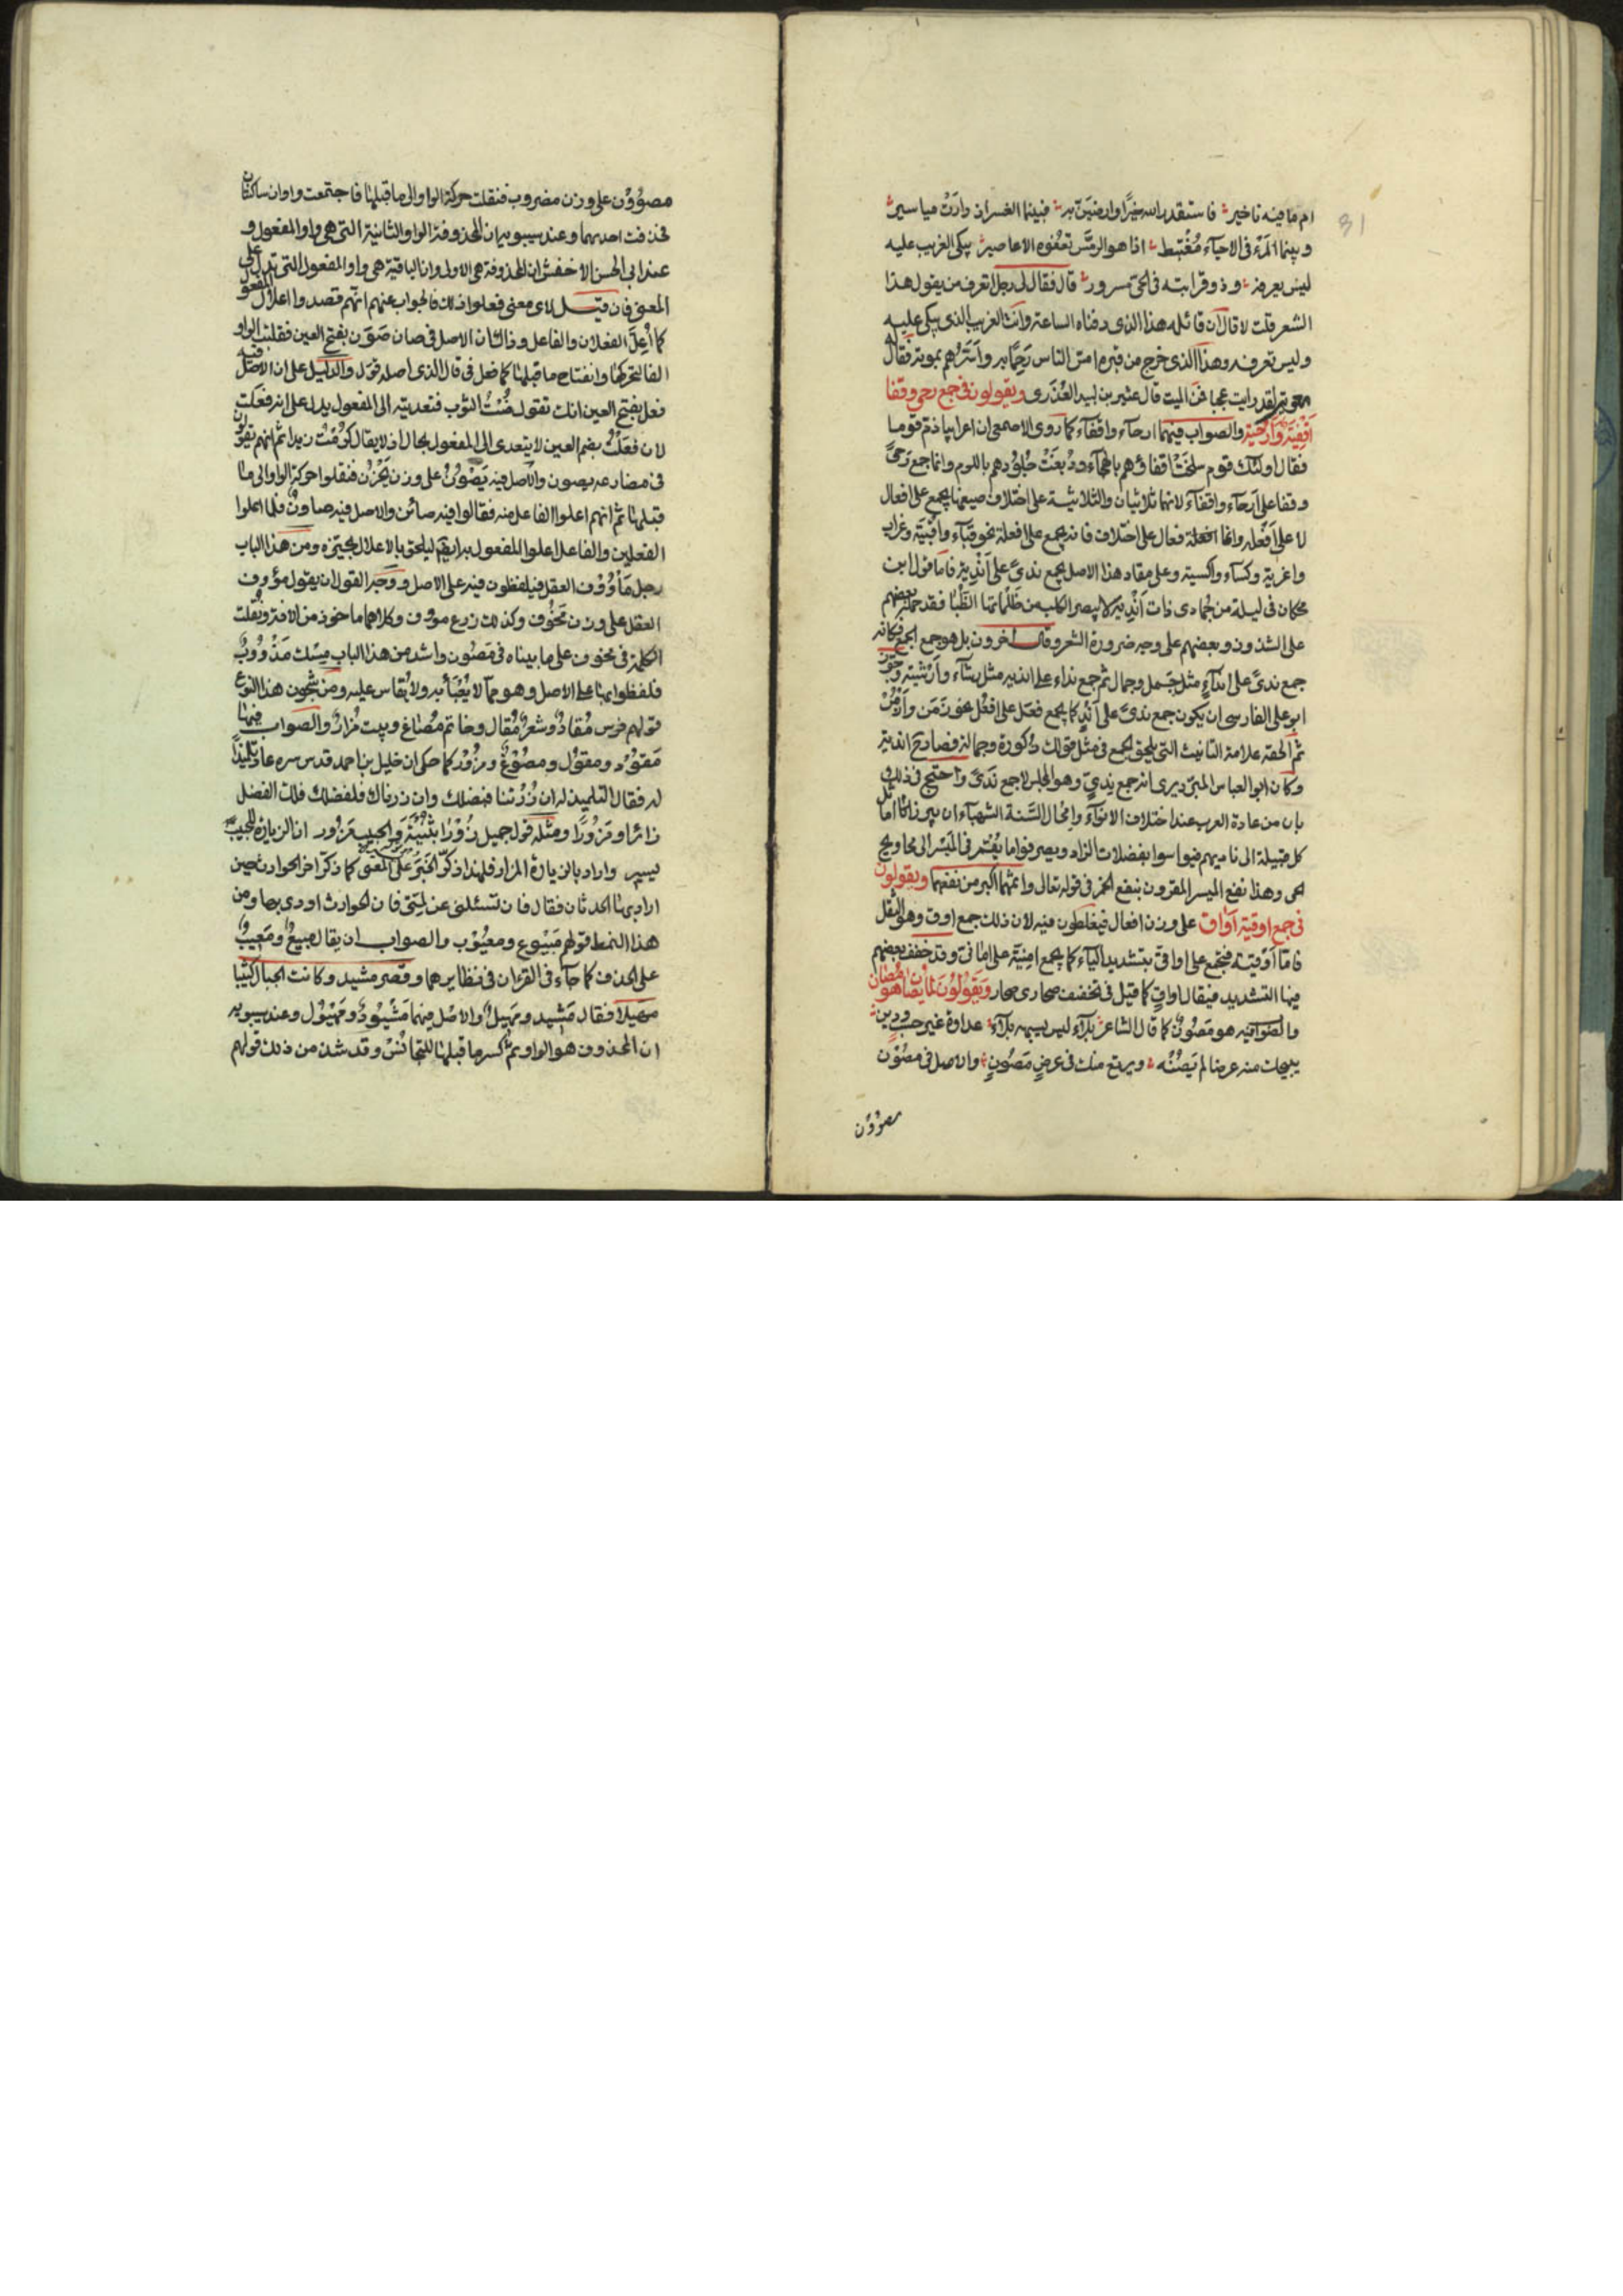 31
ام ما فيه تاخير فاستقدر الله خيرا وارضين به فبينما العسر اذ دارت مياسير
وبينما المرء في الاحياء مُغْتَبِط اذا هو الرمس تعفوه الاعاصير يبكي الغريب عليه
ليس يعرفه وذو قرابته في الحي مسرور قال فقال لي رجل اتعرف من يقول هذا
الشعر قلت لا قال ان قائله هذا الذي دفناه الساعة وانت الغريب الذي يبكي عليه
وليس تعرفه وهذا الذي خرج من قبره امس الناس رحما به وأسَرُّهم بموته فقال
معوية لقد رايت عجبا فمن الميت قال عثير بن لبيد العُذري ويقولون في جمع رحى وقفا
اقفية وارحية والصواب فيهما ارحاء واقفاء كما روى الاصمعي ان اعرابيا ذم قوما
فقال اولئك قوم سلخت اقفاؤهم بالهجاء ودبغت جلودهم باللوم وانما جمع رحى
وقفا على ارحاء واقفاء لانهما ثلاثيان والثلاثية على اختلاف صيغها يجمع على افعال
لا على افعلة وانما افعلة فعال على اختلاف فائه يجمع على افعلة نحو قباء واقبية وغراب
واغربة وكساء واكسية وعلى مقاد هذا الاصل يجمع ندى على اندية فاما قول ابن
محكان في ليلة من جمادى ذات اندية لا يبصر الكلب من ظلمائها الطنبا فقد حمله بعضهم
على الشذوذ وبعضهم على وجه ضرورة الشعر وقال اخرون بل هو جمع الجمع فكانه
جمع ندى على انداء مثل جمل وجمال ثم جمع نداء على اندية مثل رشاء وارشية وجوز
ابو علي الفارسي ان يكون جمع ندى على اند كما يجمع فعل على افعل نحو زمن وازمن
ثم الحقه علامة التانيث التي تلحق الجمع في مثل قولك ذكورة وجمالة فصار اندية
وكان ابو العباس المبرد يرى انه جمع ندي وهو المجلس لا جمع ندى واحتج في ذلك
بان من عادة العرب عند اختلاف الانواء وامحال السنة الشهباء ان يبرز اماثل
كل قبيلة الى ناديهم فيواسوا بفضلات الزاد ويصرفوا ما يقمر في الميسر الى محاويج
الحى وهذا نفع الميسر المقرون بنفع الخمر في قوله تعالى واثمهما اكبر من نفعهما ويقولون
في جمع اوقية اواق على وزن افعال فيغلطون فيه لان ذلك جمع اوق وهو الثقل
فاما اوقية فتجمع على اواقي بتشديد الياء كما يجمع امنية على اماني وقد خفف بعضهم
فيها التشديد فيقال اواق كما قيل في تخفيف صحارى صحار ويقولون لما يصان هو مصان
والصواب فيه هو مصون كما قال الشاعر بلاء ليس يشبهه بلاء عداوة غير ذي حسب ودين
يبيحك منه عرضا لم يصنه ويرتع منك في عرض مصون والاصل في مصون
مصوون
مصوون على وزن مضروب فنقلت حركة الواو الى ما قبلها فاجتمعت واوان ساكنتان
فحذفت احديهما وعند سيبويه ان المحذوفة الواو الثانية التي هي واو المفعول و
عند ابي الحسن الاخفش ان المحذوفة هي الاولى وان الباقية هي واو المفعول التي تدل على
المعنى فان قيل لاى معنى فعلوا ذلك فالجواب عنهم انهم قصدوا اعلال المفعول
كما اعل الفعلان والفاعل وذلك ان الاصل في صان صون بفتح العين فقلبت الواو
الفا لتحركها وانفتاح ما قبلها كما فعل في قال الذي اصله قول والدليل على ان الاصل فيه
فعل بفتح العين انك تقول صنت الثوب فتعديته الى المفعول يدل على انه فعلت
لان فعلت بضم العين لا يتعدى الى المفعول بحال اذ لا يقال كرمت زيدا ثم انهم يقولون
في مضارعه يصون والاصل فيه يصون على وزن يخزن فنقلوا حركة الواو الى ما
قبلها ثم انهم اعلوا الفاعل منه فقالوا فيه صائن والاصل فيه صاون فلما اعلوا
الفعلين والفاعل اعلوا المفعول به ايضا ليلحق بالاعلال بحيزه ومن هذا الباب
رجل ماووف العقل فيلفظون فيه على الاصل ووجه القول ان يقول مؤوف
العقل على وزن مخوف وكذلك زرع مؤوف وكلاهما ماخوذ من الافة ونقلت
الكلمة في مخوف على ما بيناه في مصون واشد من هذا الباب مسك مدووف
فلفظوا بها على الاصل وهو مما لا يعبأ به ولا يقاس عليه ومن شجون هذا النوع
قولهم فرس مقاد وشعر مقال وخاتم مصاغ وبيت مزار والصواب فيها
مقود ومقول ومصوغ ومزور كما حكي ان خليل بن احمد قدس سره عاد تلميذا
له فقال التلميذ له ان زرتنا فبفضلك وان زرناك فلفضلك فلك الفضل
زائرا ومزورا ومثله قول جميل زورا بثينة والحبيب مزور ان الزيارة للحبيب
يسير واراد بالزيارة المزار فلهذا ذكر الخبر على المعنى كما ذكر اخر الحوادث حين
اراد بها الحدثان فقال فان تسئلني عن لمتي فان الحوادث اودى بها ومن
هذا النمط قولهم مبيوع ومعيوب والصواب ان يقال مبيع ومعيب
على الحذف كما جاء في القران في نظايرهما وقصر مشيد وكانت الجبال كثيبا
مهيلا فقال مشيد ومهيل والاصل فيهما مشيود ومهيول وعند سيبويه
ان المحذوف هو الواو ثم كسر ما قبلها للتجانس وقد شذ من ذلك قولهم